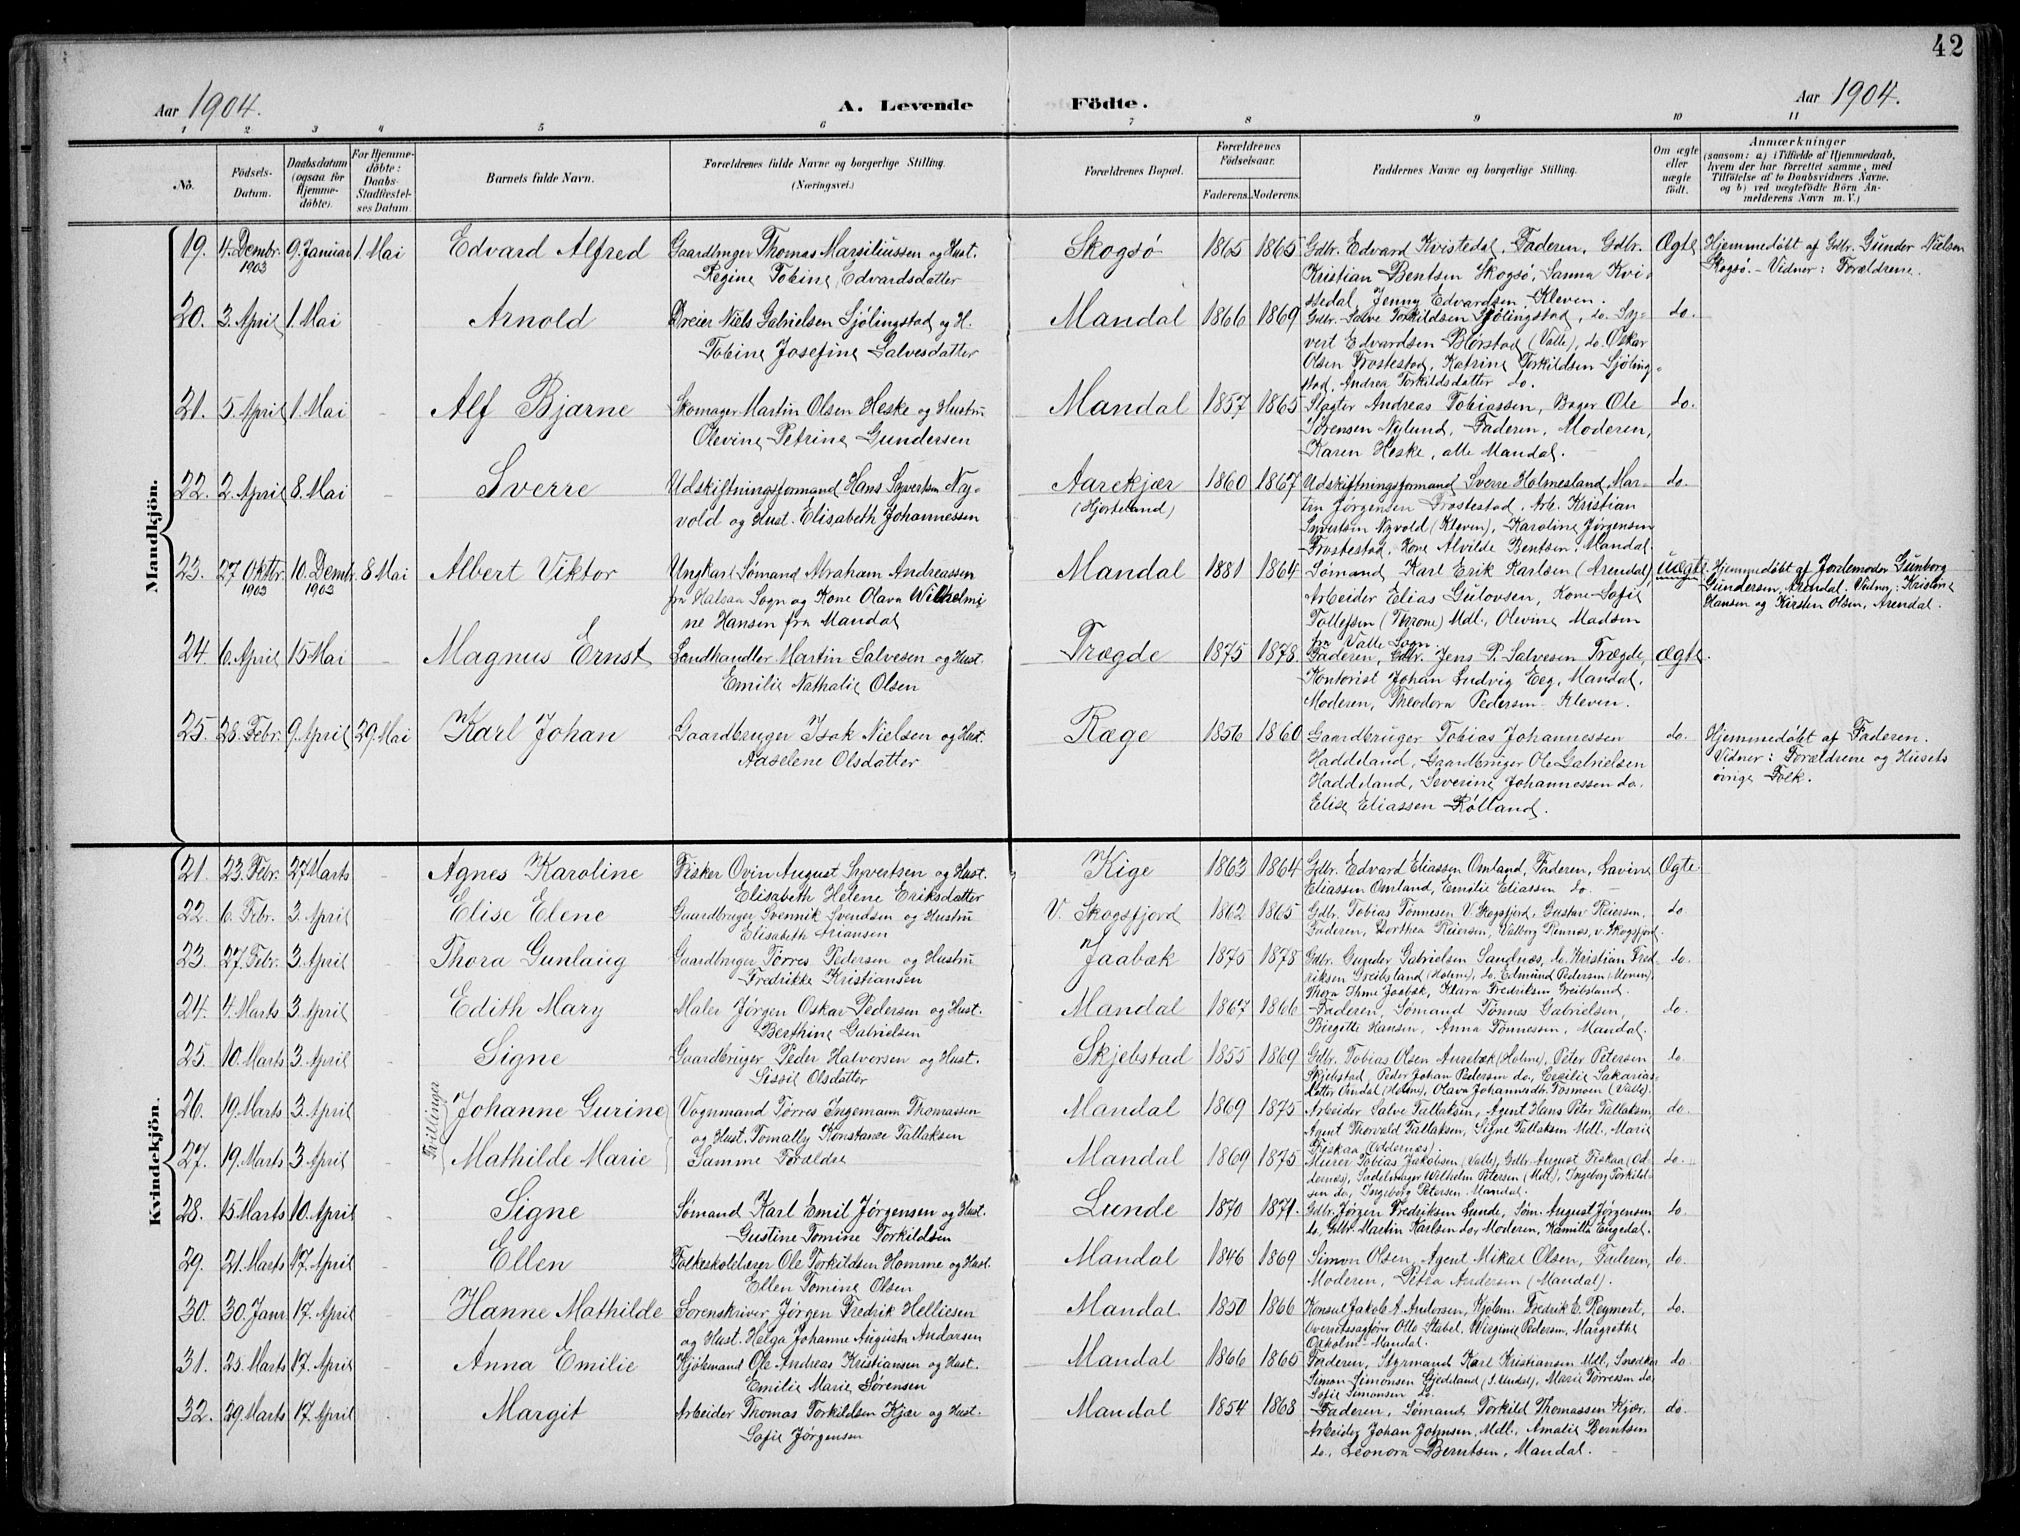 42
Aar 1904. A. Levende Födte. Aar 1904.
1 2 3 4 5 6 7 8 9 10 11
No. Födsels-Datum. Daabsdatum (ogsaa for Hjemmedöbte). For Hjemmedöbte: Daabs-Stadfæstelses Datum. Barnets fulde Navn. Forældrenes fulde Navne og borgerlige Stilling. (Næringsvei.) Forældrenes Bopæl. Forældrenes Födselsaar. Faderens. Moderens. Faddernes Navne og borgerlige Stilling. Om ægte eller uægte födt. Anmærkninger (saasom: a) i Tilfælde af Hjemmedaab, hvem der har forrettet samme, med Tilföielse af to Daabsvidners Navne, og b) ved uægtefödte Börn Anmelderens Navn m. V.)
Mandkjön.
19. 4. Dembr. 1903 9. Januar 1. Mai Edvard Alfred Gaardbruger Thomas Marsiliussen og Hust. Skogsø 1865 1865 Gdbr. Edvard Kvistedal, Faderen, Gdbr. Ægte Hjemmedøbt af Gdbr. Gunder Nielsen
Regine Tobine Edvardsdatter Kristian Bentsen Skogsø, Sanna Kvi- Skogsø. - Vidner: Forældrene.
stedal, Jenny Edvardsen Kleven.
20. 3. April 1. Mai - Arnold Dreier Niels Gabrielsen Sjölingstad og H. Mandal 1866 1869 Gdbr. Salve Torkildsen Sjølingstad, do. Sy- do.
Tobine Josefine Salvesdatter vert Edvardsen Børstad (Valle), do. Oskar
Olsen Frostestad, Katrine Torkildsen Sjøling-
stad, Andrea Torkildsdatter do.
21. 5. April 1. Mai - Alf Bjarne Skomager Martin Olsen Heske og Hustru Mandal 1857 1865 Slagter Andreas Tobiassen, Bager Ole do.
Olevine Petrine Gundersen Sørensen Nylund, Faderen, Moderen,
Karen Heske, alle Mandal.
22. 2. April 8. Mai - Sverre Udskiftningsformand Hans Syvertsen Ny- Aarekjær 1860 1867 Udskiftningsformand Sverre Holmesland, Mar- do.
vold og Hust. Elisabeth Johannessen (Hjorteland) tin Jørgensen Frostestad, Arb. Kristian
Syvertsen Nyvold (Kleven), Karoline Jørgensen
Frostestad, Kone Alvilde Bentsen, Mandal.
23. 27 Oktbr. 1903 10. Dembr. 1903 8 Mai Albert Viktor Ungkarl Sømand Abraham Andreassen Mandal 1881 1864 Sømand Karl Erik Karlsen (Arendal), Uægte Hjemmedøbt af Jordemoder Gunborg
fra Halsaa Sogn og Kone Olava Wilhelmi- Arbeider Elias Geitovsen, Kone Sofie Gundersen, Arendal. Vidner: Kristine
ne Hansen fra Mandal Tollefsen (Tarone) Mdl., Olevine Madsen Hansen og Kirsten Olsen, Arendal.
fra Valle Sogn.
24. 6. April 15 Mai - Magnus Ernst Landhandler Martin Salvesen og Hust. Trægde 1875 1878 Faderen, Gdbr. Jens P. Salvesen Trægde, ægte.
Emilie Nathalie Olsen Kontorist Johan Ludvig Eeg, Mandal,
Moderen, Theodora Pedersen Kleven.
25. 28. Febr. 9. April 29. Mai Karl Johan Gaardbruger Isak Nielsen og Hust. Ræge 1856 1860 Gaardbruger Tobias Johannessen do. Hjemmedøbt af Faderen.
Aaselene Olsdatter Haddeland, Gaardbruger Ole Gabrielsen Vidner: Forældrene og Husets
Haddeland, Severine Johannessen do. øvrige Folk.
Elise Eliassen Rølland.
Kvindekjön.
21. 23. Febr. 27 Marts - Agnes Karoline Fisker Ovin August Syvertsen og Hust. Kige 1863 1864 Gdbr. Edvard Eliassen Omland, Faderen, Lavine Ægte
Elisabeth Helene Eriksdatter Eliassen Omland, Emilie Eliassen do.
22. 6. Febr. 3. April - Elise Elene Gaardbruger Svennik Svendsen og Hustru V. Skogsfjord 1862 1865 Gdbr. Tobias Tønnesen V. Skogsfjord, Gustav Reiersen, do.
Elisabeth Ariansen Faderen, Dorthea Reiersen, Valborg Rinnas, v. Skogsfjord.
23. 27. Febr. 3. April - Thora Gunlaug Gaardbruger Tørres Pedersen og Hustru Jaabæk 1875 1878 Gdbr. Gunder Gabrielsen Sandnæs, do. Kristian Fred- do.
Fredrikke Kristiansen riksen Greibsland (Holme), do. Edmund Pedersen (Uleven),
Thora Ihme Jaabæk, Klara Fredriksen Greibsland.
24. 4. Marts 3. April - Edith Mary Maler Jørgen Oskar Pedersen og Hust. Mandal 1867 1866 Faderen, Sømand Tønnes Gabrielsen, do.
Berthine Gabrielsen Birgitte Hansen, Anna Tønnessen, Mandal.
25. 10. Marts 3. April - Signe Gaardbruger Peder Halvorsen og Hust. Skjebstad 1855 1869 Gdbr. Tobias Olsen Aurebæk (Holme), Peter Petersen do.
Sissil Olsdatter Skjebstad, Peder Johan Pedersen do, Cecilie Sakarias-
datter Omdal (Holme), Olava Johannesdtr. (Valle).
Tvillinger
26. 19. Marts 3. April Johanne Gurine Vognmand Tørres Ingemann Thomassen Mandal 1869 1875 Arbeider Salve Tallaksen, Agent Hans Peter Tallaksen, do.
og Hust. Tomally Konstance Tallaksen Agent Thorvald Tallaksen, Signe Tallaksen Mdl., Marie
Fiskaa (Oddernæs).
27. 19. Marts 3 April Mathilde Marie Samme Forældre Mandal 1869 1875 Murer Tobias Jakobsen (Valle), Gdbr. August Fiskaa (Od- do.
dernæs), Sadelmager Wilhelm Petersen (Mdl), Ingeborg Torkild-
sen do, Ingeborg Petersen Mandal.
28. 15. Marts 10. April - Signe Sømand Karl Emil Jørgensen og Hust. Lunde 1870 1871. Gdbr. Jørgen Fredriksen Lunde, Søm. August Jørgensen do
Gustine Tomine Torkildsen do, Gdbr. Martin Karlsen do, Moderen, Kamilla Eugedal.
29. 21. Marts 17. April - Ellen Folkeskolelærer Ole Torkildsen Homme og Hust. Mandal 1846 1869 Simon Olsen, Agent Mikal Olsen, Faderen, do
Ellen Tomine Olsen Moderen, Petra Andersen (Mandal).
30. 30. Janr. 17. April - Hanne Mathilde Sorenskriver Jørgen Fredrik Helliesen Mandal 1850 1866 Konsul Jakob A. Andorsen, Kjøbm. Fredrik E. Reymert, do.
og Hust. Helga Johanne Augusta Andorsen Overretssagfører Otto Stabel, Wirginie Pedersen, Margrethe
Oxholm Mandal.
31. 25. Marts 17. April - Anna Emilie Kjøbmand Ole Andreas Kristiansen og Hust. Mandal 1866 1865 Faderen, Styrmand Karl Kristiansen Mdl., Snedker do
Emilie Marie Sørensen Simon Simonsen Gjedeland (S. Undal), Marie Tørressen do
Sofie Simonsen do.
32. 29. Marts 17. April Margit Arbeider Thomas Torkildsen Kjær og Hust. Mandal 1854 1868 Faderen, Sømand Torkild Thomassen Kjær, do.
Sofie Jørgensen Arbeider Johan Johnsen Mdl., Amalie Berntsen
do., Leonora Berntsen, Mandal.